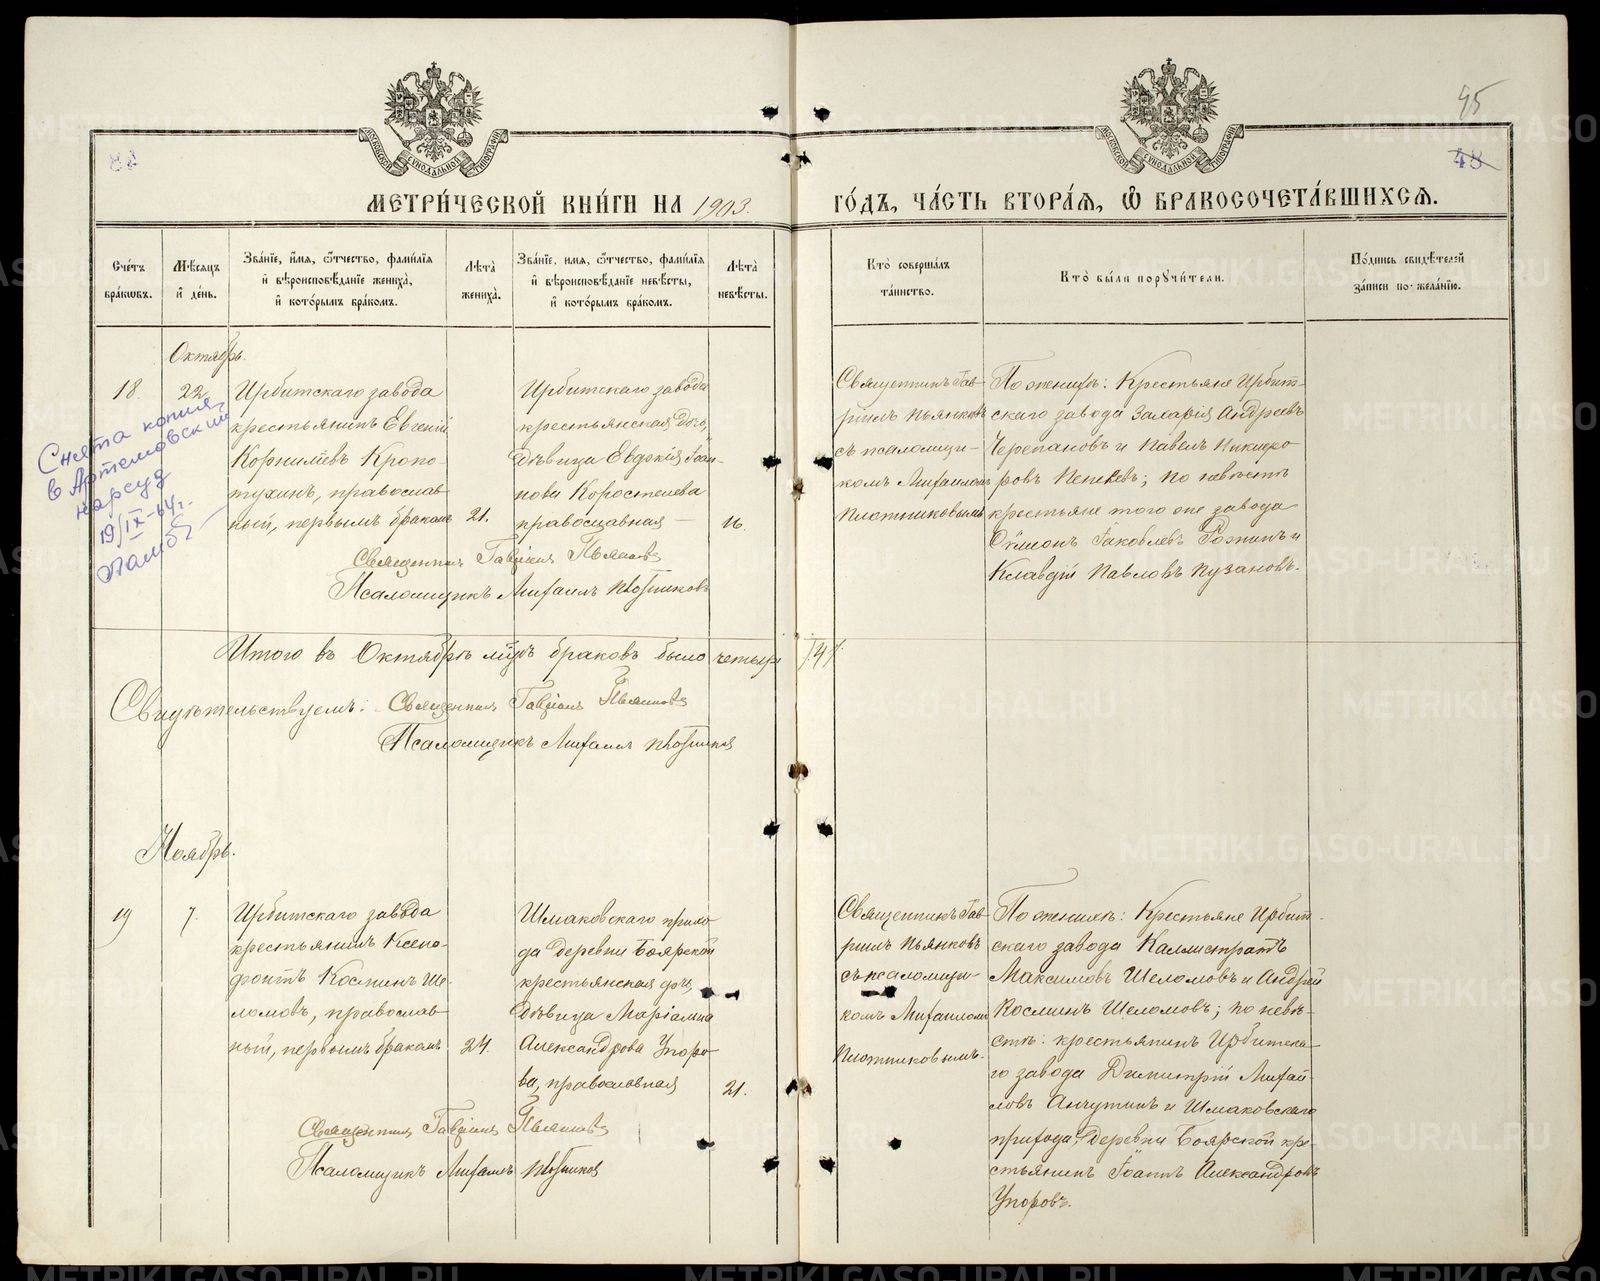 45
48
МЕТРИ́ЧЕСКОЙ КНИ́ГИ НА 1903.
ГО́ДЪ, ЧА́СТЬ ВТОРА́Я, Ѿ БРАКОСОЧЕТА́ВШИХСЯ.
Сче́тъ бра́кѡвъ.
Мѣ́сяцъ и҆ де́нь.
Зва́нїе, и҆́мя, ѻ҆́тчество, фами́лїя и҆ вѣроисповѣ́данїе жениха̀, и҆ кото́рымъ бра́комъ.
Лѣ́та жениха̀.
Зва́нїе, имя, ѻ҆́тчество, фами́лїя и҆ вѣроисповѣ́данїе невѣ́сты, и҆ кото́рымъ бра́комъ.
Лѣ́та невѣ́сты.
Кто̀ соверша́лъ та́инство.
Кто̀ бы́ли порꙋчи́тели.
По́дпись свидѣ́телей за́писи по желанїю.
Октябрь.
18.
22.
Ирбитскаго завода
крестьянинъ Евгеній
Корниліевъ Кропо-
тухинъ, православ-
ный, первымъ бракомъ
21.
Ирбитскаго завода
крестьянская дочь,
дѣвица Евдокія Іоан-
нова Коростелева
православная —
16.
Священникъ Гав-
ріилъ Пьянковъ
съ псаломщи-
комъ Михаиломъ
Плотниковымъ
По женихѣ: Крестьяне Ирбит-
скаго завода Захарія Андреевъ
Черепановъ и Павелъ Никифо-
ровъ; по невѣстѣ
крестьяне того же завода
Іаковлевъ и
Клавдій Павловъ Пузановъ.
Снята копия
в Артемовский
нарсуд
19/IX-64 г.
Священникъ Гавріилъ Пьянковъ
Псаломщикъ Михаилъ Плотниковъ
Итого въ Октябрѣ м͠цѣ браковъ было четыре /4/.
Свидѣтельствуемъ: Священникъ Гавріилъ Пьянковъ
Псаломщикъ Михаилъ Плотниковъ
Ноябрь.
19
7.
Ирбитскаго завода
крестьянинъ Ксено-
фонтъ Косминъ Ше-
ломовъ, православ-
ный, первымъ бракомъ
24.
Шмаковскаго прихо-
да деревни Боярской
крестьянская дочь,
дѣвица Маріамна
Александрова Упоро-
ва, православная
21.
Священникъ Гав-
ріилъ Пьянковъ
съ псаломщи-
комъ Михаиломъ
Плотниковымъ.
По женихѣ: Крестьяне Ирбит-
скаго завода Каллистратъ
Максимовъ Шеломовъ и Андрей
Косминъ Шеломовъ; по невѣ-
стѣ: крестьянинъ Ирбитска-
го завода Димитрій Михай-
ловъ Анчутинъ и Шмаковскаго
прихода, деревни Боярской кре-
стьянинъ Іоаннъ Александровъ
Упоровъ.
Священникъ Гавріилъ Пьянковъ
Псаломщикъ Михаилъ Плотниковъ
METRIKI.GASO-URAL.RU